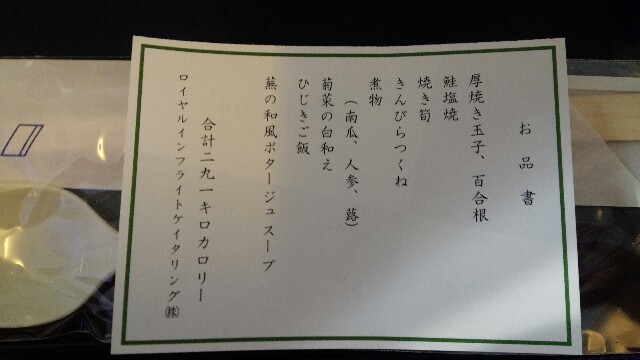 お品書
厚焼き玉子、百合根
鮭塩焼
焼き筍
きんぴらつくね
煮物
（南瓜、人参、蕗）
菊菜の白和え
ひじきご飯
蕪の和風ポタージュスープ
合計二九一キロカロリー
ロイヤルインフライトケイタリング㈱